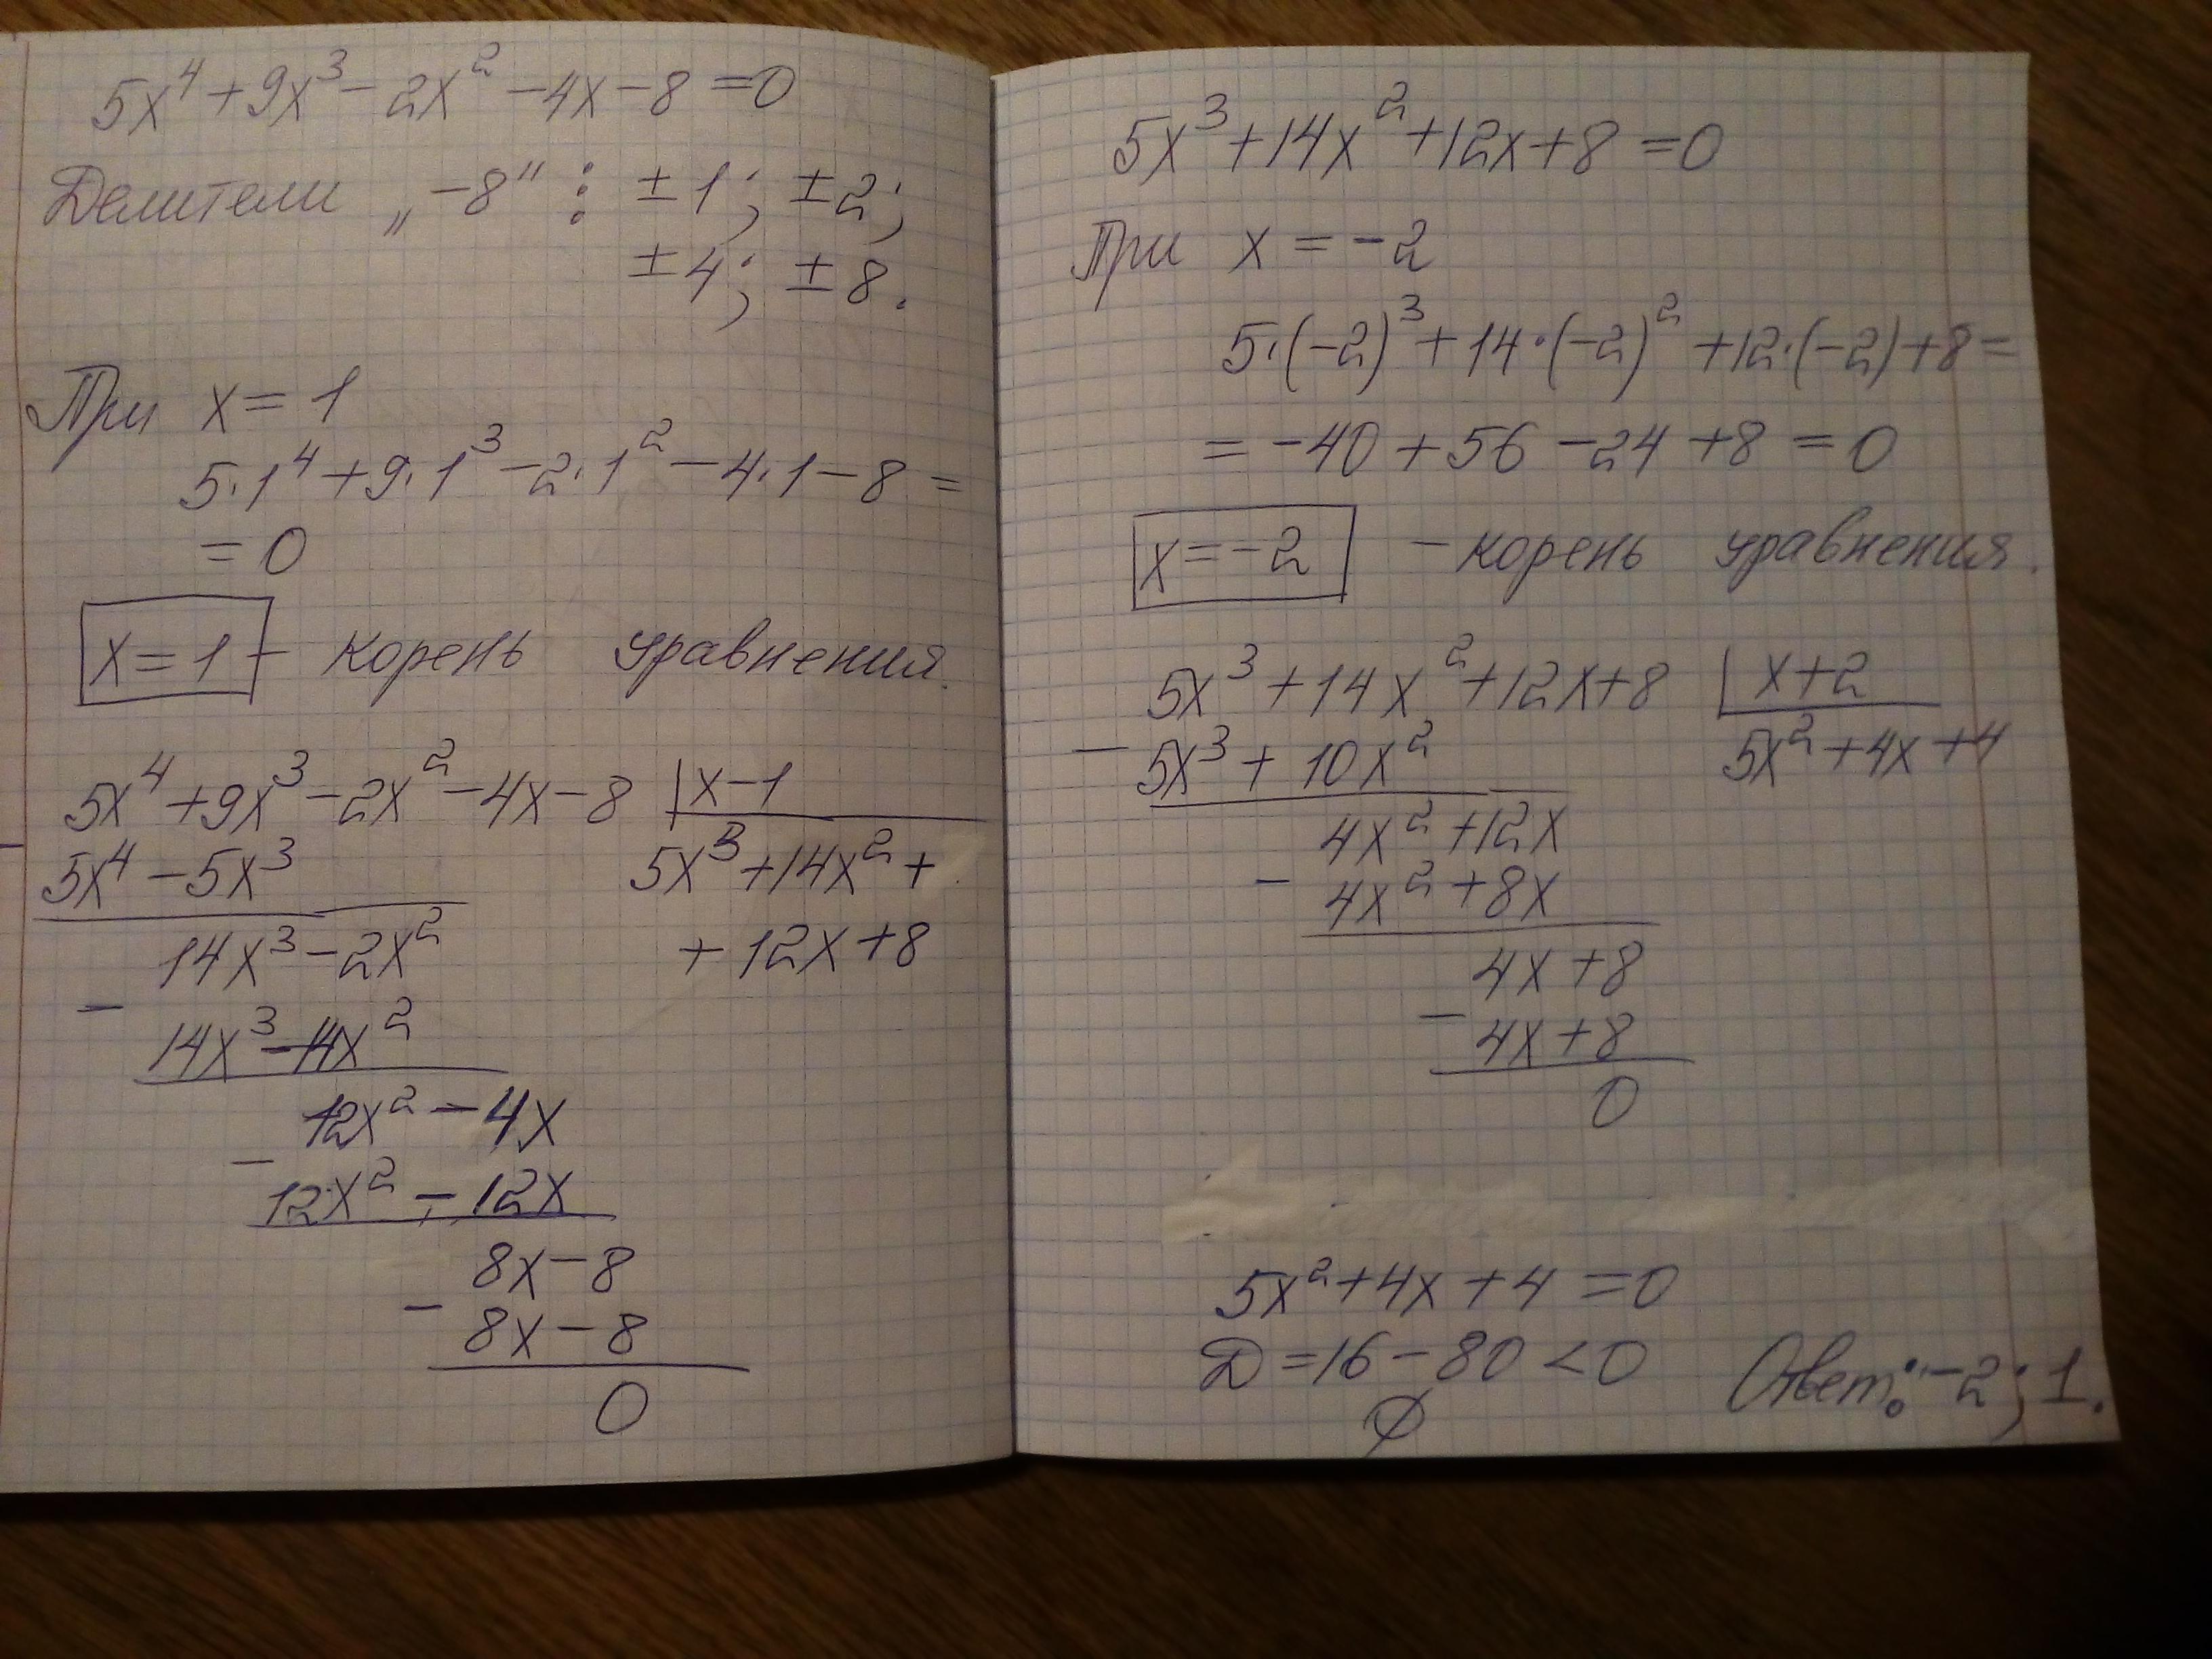 5x⁴+9x³-2x²-4x-8=0
Делители „-8" : ±1; ±2;
±4; ±8.
При x=1
5·1⁴+9·1³-2·1²-4·1-8=
=0
x=1 - корень уравнения.
5x⁴+9x³-2x²-4x-8 | x-1
- 5x⁴-5x³ 5x³+14x²+
14x³-2x² +12x+8
-
14x³-14x²
12x²-4x
-
12x²-12x
8x-8
-
8x-8
0
5x³+14x²+12x+8=0
При x=-2
5·(-2)³+14·(-2)²+12·(-2)+8=
=-40+56-24+8=0
x=-2 - корень уравнения.
5x³+14x²+12x+8 | x+2
- 5x³+10x² 5x²+4x+4
4x²+12x
- 4x²+8x
4x+8
- 4x+8
0
5x²+4x+4=0
D=16-80<0
∅
Ответ: -2; 1.